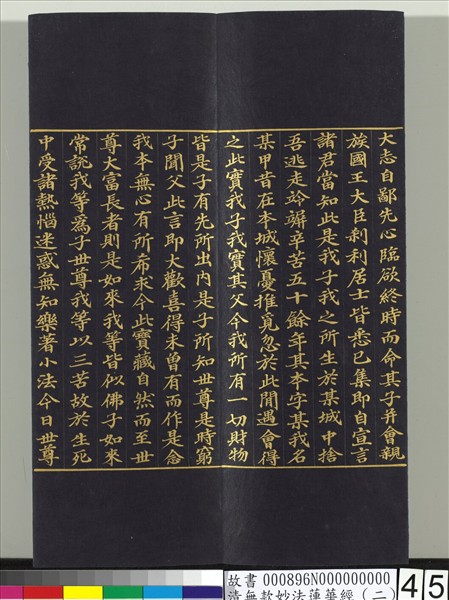 大志自鄙先心臨欲終時而命其子并會親
族國王大臣剎利居士皆悉已集即自宣言
諸君當知此是我子我之所生於某城中捨
吾逃走竛竮辛苦五十餘年其本字某我名
某甲昔在本城懷憂推覓忽於此間遇會得
之此實我子我實其父今我所有一切財物
皆是子有先所出內是子所知世尊是時窮
子聞父此言即大歡喜得未曾有而作是念
我本無心有所希求今此寶藏自然而至世
尊大富長者則是如來我等皆似佛子如來
常說我等為子世尊我等以三苦故於生死
中受諸熱惱迷惑無知樂著小法今日世尊
故書 000896N000000000
清無款妙法蓮華經(二)
45